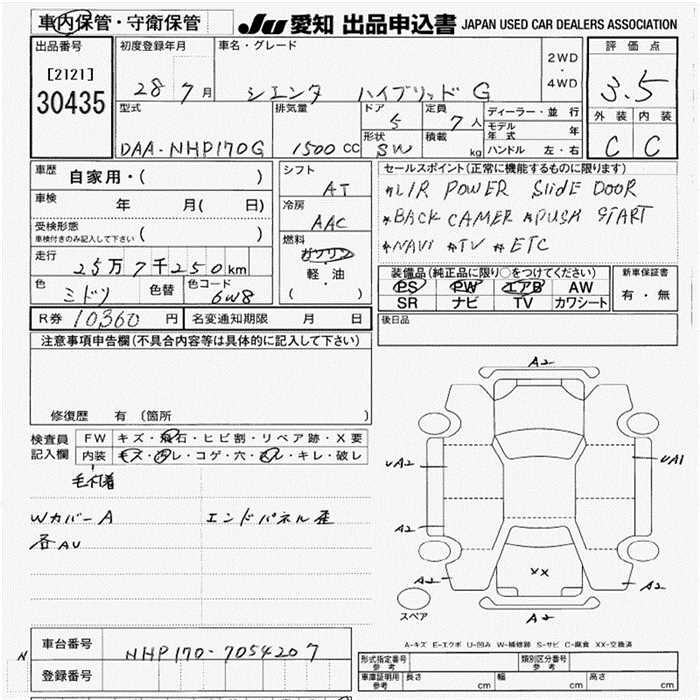 車内保管・守衛保管 JU 愛知 出品申込書 JAPAN USED CAR DEALERS ASSOCIATION
出品番号 初度登録年月 車名・グレード 2WD ・ 4WD 評価点
[2121] 28 7月 シエンタ ハイブリッドG 3.5
30435
型式 排気量 ドア 定員 ディーラー・並行 外装 内装
5 7人 モデル年式 年
DAA-NHP170G 1500cc 形状 SW 積載 kg ハンドル 左・右 C C
車歴 自家用・( ) シフト AT セールスポイント(正常に機能するものに限ります)
*L/R POWER SliDE DOOR
車検 年 月( 日) 冷房 AAC *BACK CAMER *PUSH START
受検形態 車検付きのみ記入して下さい ( ) 燃料 ガソリン *NAVI *TV *ETC
走行 25万7千250km 軽・油 装備品(純正品に限り○をつけてください) 新車保証書
色 ミドリ 色替 色コード 6W8 ( ) PS PW エアB AW 有・無
SR ナビ TV カワシート
R券 10360円 名変通知期限 月 日 後日品
注意事項申告欄(不具合内容等は具体的に記入して下さい)
A2
修復歴 有(箇所 )
検査員 FW キズ・飛石・ヒビ割・リペア跡・X要
記入欄 内装 キズ・汚レ・コゲ・穴・スレ・キレ・破レ
UA2 UA1
Wカバー A エンドパネル歪
A2
各AU
A2 XX A2
スペア
A2
A-キズ E-エクボ U-凹み W-補修跡 S-サビ C-腐食 XX-交換済
車台番号 NHP170-7054207 形式指定番号 参考 類別区分番号 参考
N 登録番号 車庫証明用 参考 長さ cm 幅 cm 高さ cm